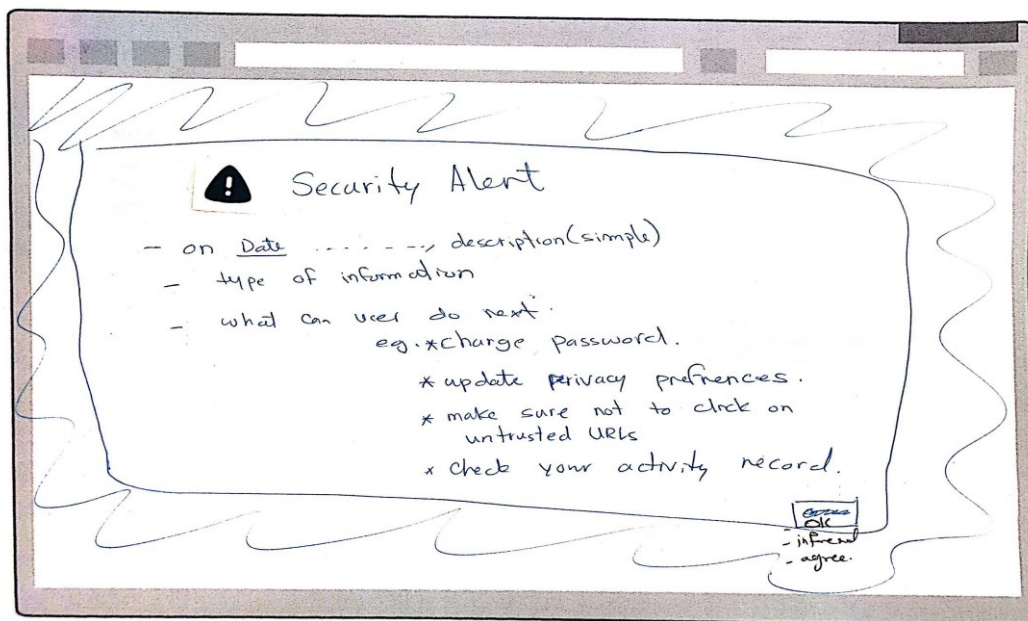 ! Security Alert
- on Date ........., description (simple)
- type of information
- what can user do next:
eg. * Change password.
* update perivacy prefrences.
* make sure not to click on
untrusted URLs
* Check your activity record.
OK
-
- agree.